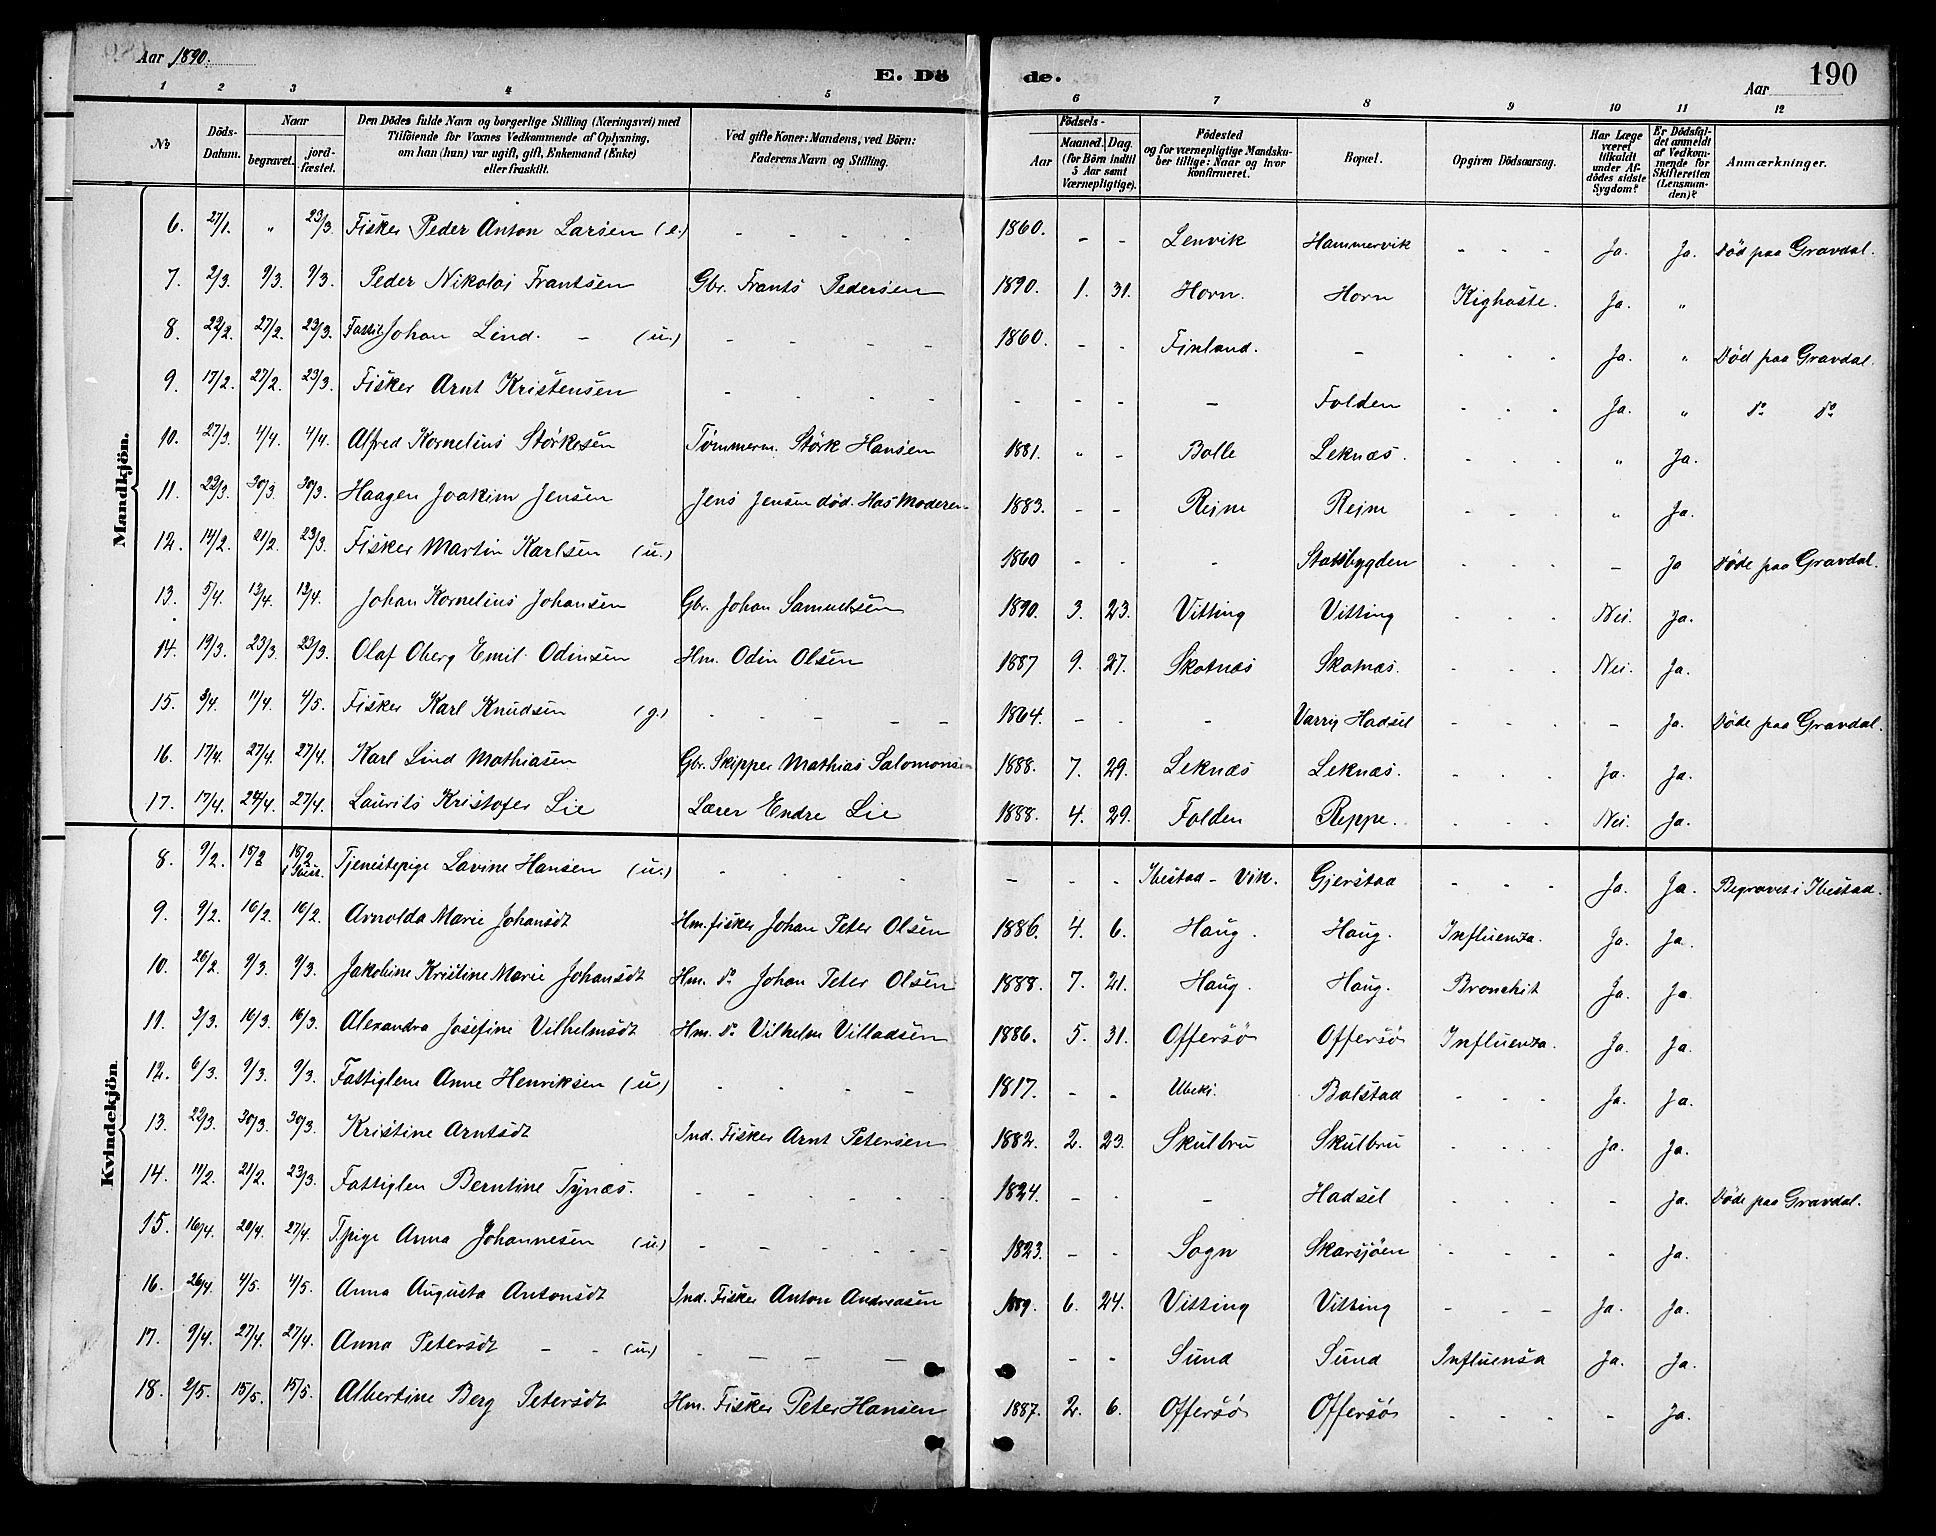 Aar 1890. E. Dö de. Aar 190
1 2 3 4 5 6 7 8 9 10 11 12
№ Döds-Datum. Naar begravet. jord-fæstet. Den Dödes fulde Navn og borgerlige Stilling (Næringsvei) med Tilföiende for Voxnes Vedkommende af Oplysning, om han (hun) var ugift, gift, Enkemand (Enke) eller fraskilt. Ved gifte Koner: Mandens, ved Börn: Faderens Navn og Stilling. Födsels- Aar Maaned. Dag. (for Börn indtil 5 Aar samt Værnepligtige). Födested og for værnepligtige Mandskaber tillige: Naar og hvor konfirmeret. Bopæl. Opgiven Dödsaarsag. Har Læge været tilkaldt under Afdödes sidste Sygdom? Er Dödsfaldet anmeldt af Vedkommende for Skifteretten (Lensmanden)? Anmærkninger.
Mandkjön.
6. 27/1. " 23/3. Fisker Peder Anton Larsen (e.) - - - - 1860. - - Lenvik Hammervik - - - Ja. Ja. Død paa Gravdal.
7. 2/3. 9/3. 9/3. Peder Nikolai Frantsen Gbr. Frants Pedersen 1890. 1. 31. Horn. Horn Kighoste. Ja. "
8. 22/2. 27/2. 23/3. Fattil. Johan Lind. - (u.) - - - - 1860. - - Finland. - - - - Ja. " Død paa Gravdal.
9. 17/2. 27/2. 23/3. Fisker Arnt Kristensen - - - - - - - - Folden - - - Ja. " do do
10. 27/3. 4/4. 4/4. Alfred Kornelius Størkesen Tømmerm. Størk Hansen 1881. " - Bolle Leknæs. - - - " Ja.
11. 22/3. 30/3. 30/3. Haagen Joakim Jensen Jens Jensen død. Hos Moderen 1883. - - Reine Reine - - - " Ja.
12. 14/2. 21/2. 23/3. Fisker Martin Karlsen (u.) 1860 - Statsbygden - - - - Ja Døde paa Gravdal.
13. 5/4. 13/4. 13/4. Johan Kornelius Johansen Gbr. Johan Samuelsen 1890. 3. 23. Vitting Vitting - - - Nei. Ja.
14. 19/3. 23/3. 23/3. Olaf Oberg Emil Odinsen Hm. Odin Olsen 1887 9. 27. Skotnæs Skotnæs. - - - Nei. Ja.
15. 3/4. 11/4. 4/5. Fisker Karl Knudsen (g.) - - - - - 1864. - - - Hadsel - - - - Ja. Døde paa Gravdal.
16. 17/4. 27/4. 27/4. Karl Lind Mathiasen Gbr. Skipper Mathias Salomonsen 1888. 7. 29. Leknæs Leknæs. - - - Ja. Ja.
17. 17/4. 24/4. 27/4. Laurits Kristofer Lie Lærer Endre Lie 1888. 4. 29. Folden Reppe. - - - Nei. Ja.
Kvindekjön
8. 9/2. 18/2 18/2 Tjenestepige Lavine Hansen (u.) - - - - - - - Ibestad - Vik. Gjerstad - - - Ja. Ja. Begravet i Ibestad.
9. 9/2. 16/2. 16/2. Arnolda Marie Johansdt Hm. fisker Johan Peter Olsen 1886. 4. 6. Haug. Haug. Influenza. Ja. Ja.
10. 26/2. 9/3. 9/3. Jakobine Kristine Marie Johansdt Hm. do Johan Peter Olsen 1888. 7. 21. Haug. Haug. Bronchit Ja. Ja.
11. 3/3. 16/3. 16/3. Alexandra Josefine Vilhelmsdt Hm. do Vilhelm Villadsen 1886. 5. 31. Offersø Offersø Influenza. Ja. Ja.
12. 6/3. 9/3. 9/3. Fattiglem Anne Henriksen (u.) - - - - 1817. - - Ubek. Bolstad - - - Ja. Ja.
13. 22/3. 30/3. 30/3. Kristine Arntsdt Ind. Fisker Arnt Petersen 1882. 2. 23. Skulbru Skulbru - - - Ja. Ja.
14. 11/2. 21/2. 23/3. Fattiglem Berntine Tynæs. - - - - - 1824. - - - Hadsel - - - - Ja. Døde paa Gravdal.
15. 16/4. 20/4. 27/4. T.pige Anna Johannesen (u.) - - - - - 1823. - - Sogn Skarsjøen - - - - Ja.
16. 26/4. 4/5. 4/5. Anna Augusta Antonsdt Ind. Fisker Anton Andreasen 1889. 6. 24. Vitting Vitting - - - Ja. Ja.
17. 9/4. 27/4. 27/4. Anna Petersdt - - (u.) - - - - - - Sund Sund Influensa Ja. Ja.
18. 2/5. 15/5. 15/5. Albertine Berg Petersdt Hm. Fisker Peter Hansen 1887. 2. 6. Offersø Offersø - - - - Ja.